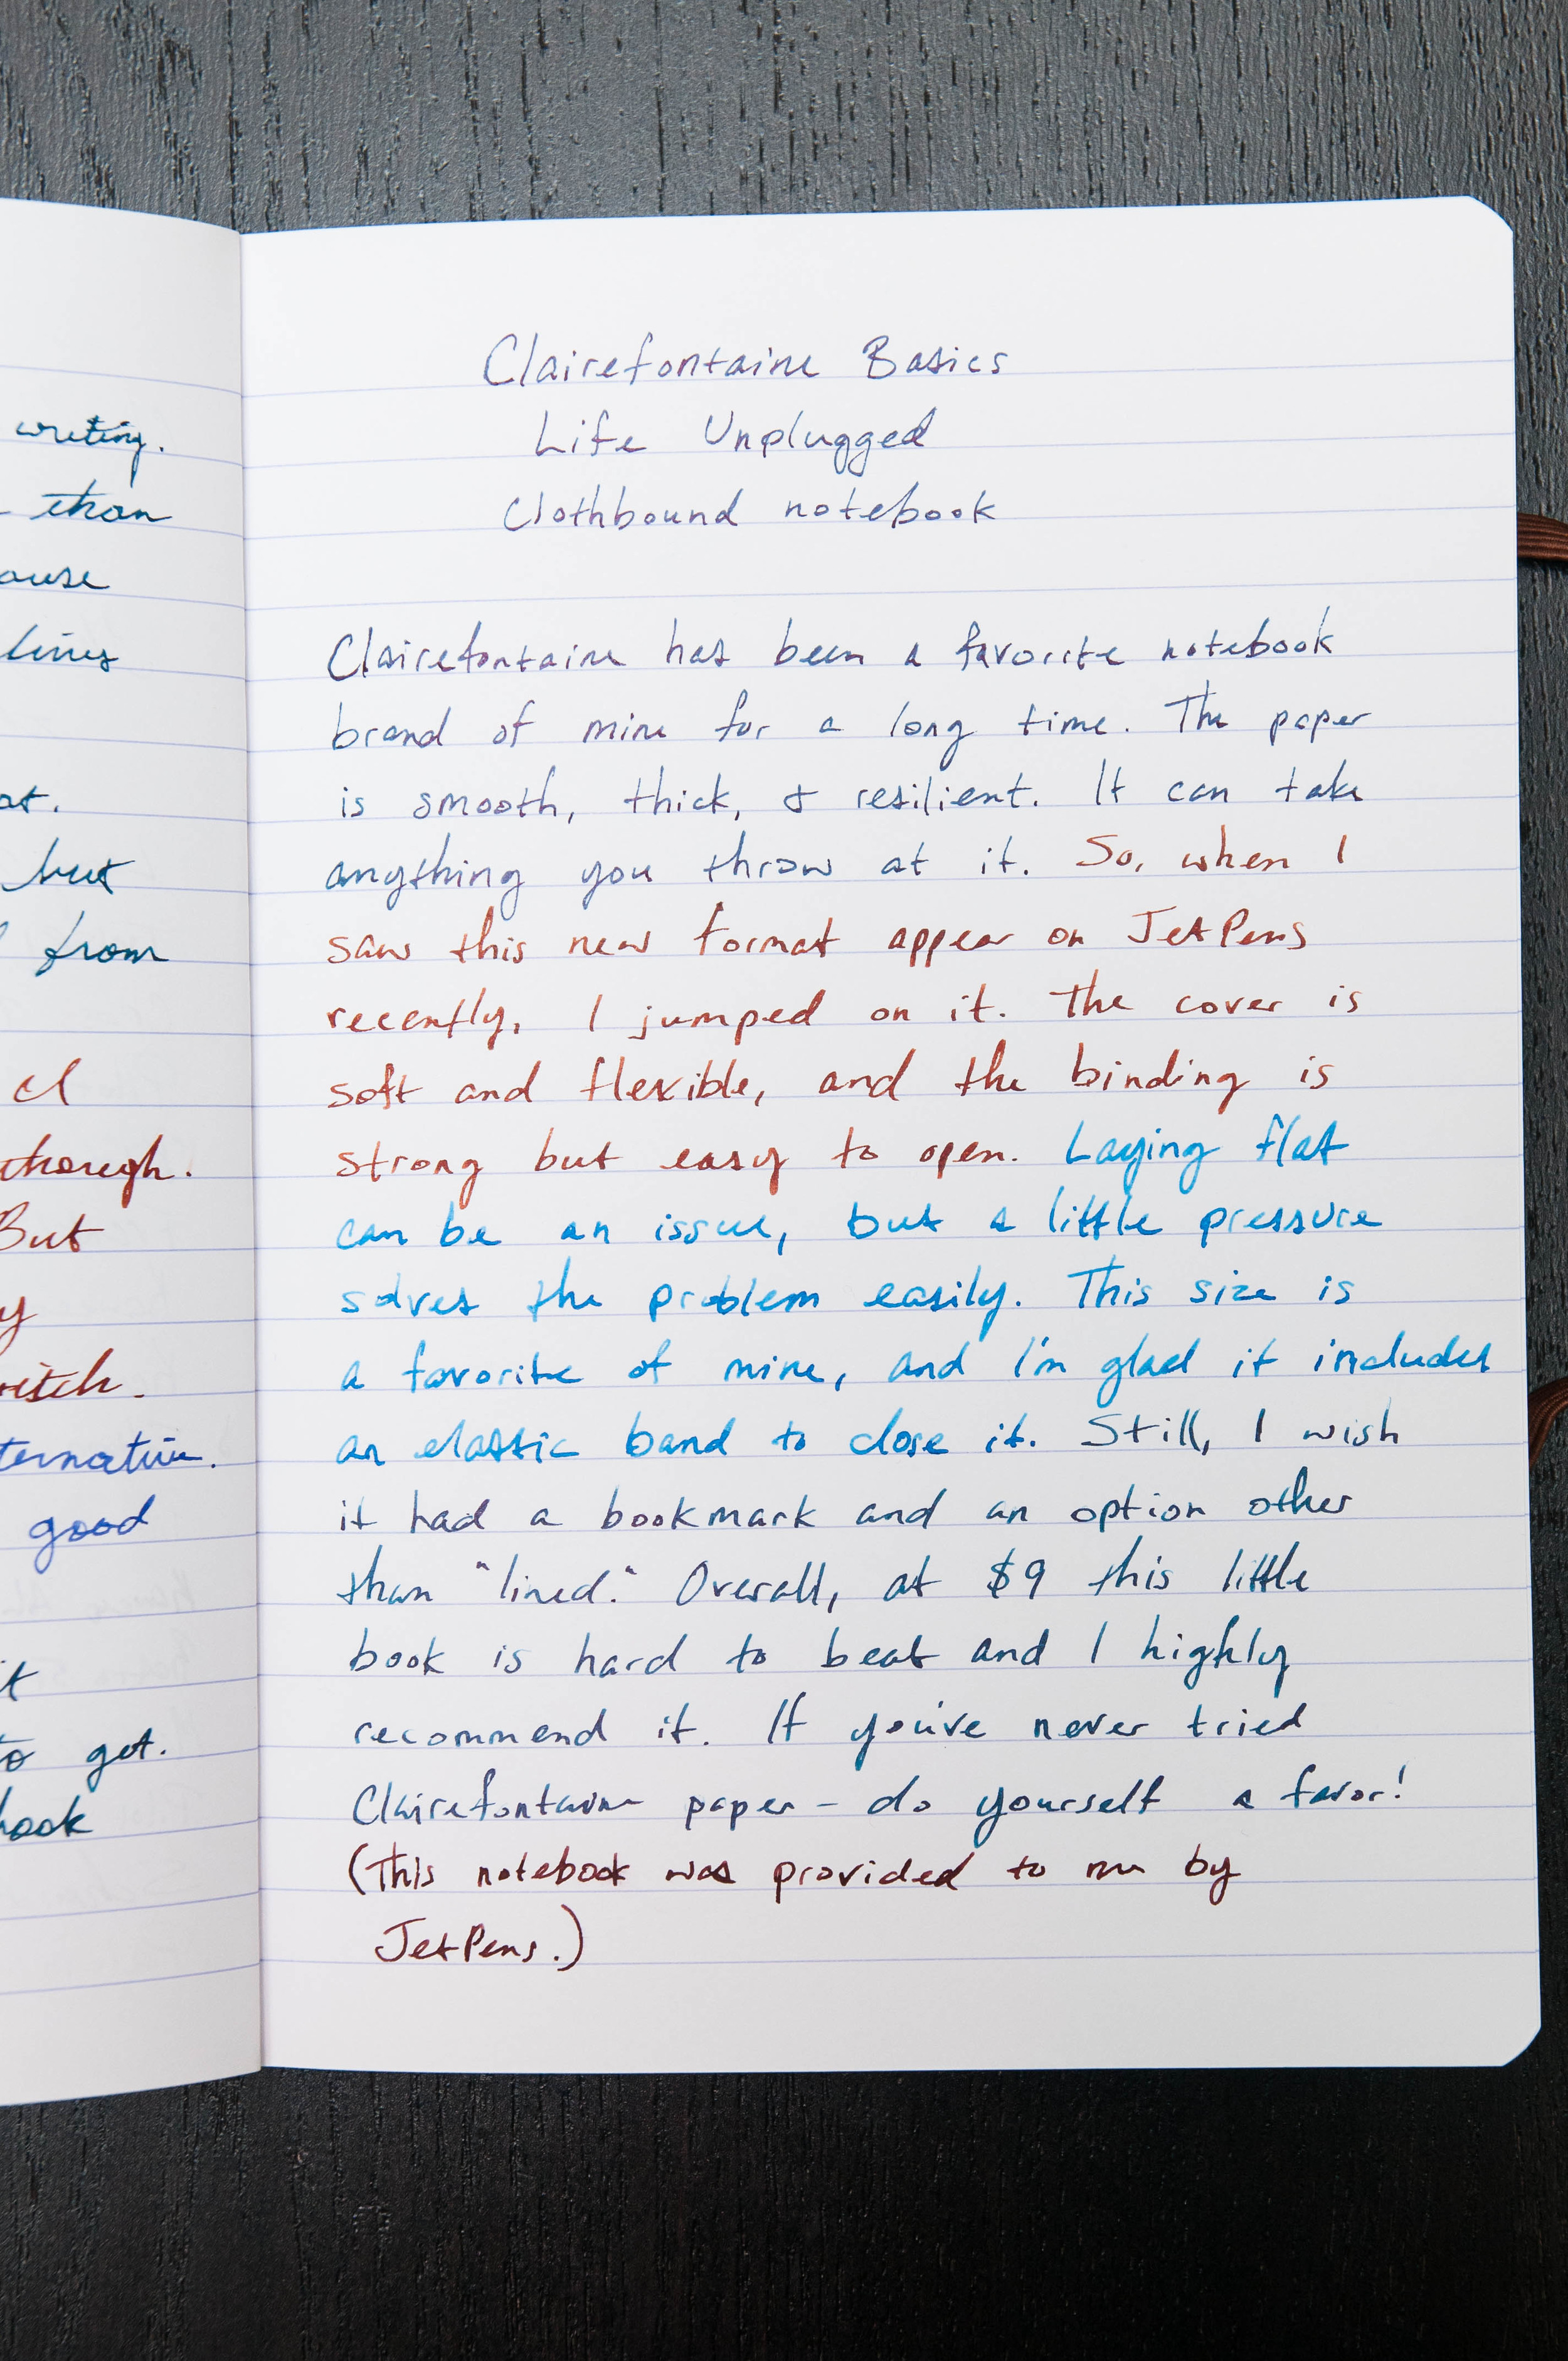 writing.
than
lines
but
from
though.
But
good
to get.
Clairefontaine Basics
Life Unplugged
Clothbound notebook
Clairefontaine has been a favorite notebook
brand of mine for a long time. The paper
is smooth, thick, & resilient. It can take
anything you throw at it. So, when I
saw this new format appear on JetPens
recently, I jumped on it. The cover is
soft and flexible, and the binding is
strong but easy to open. Laying flat
can be an issue, but a little pressure
solves the problem easily. This size is
a favorite of mine, and I'm glad it includes
an elastic band to close it. Still, I wish
it had a bookmark and an option other
than "lined." Overall, at $9 this little
book is hard to beat and I highly
recommend it. If you've never tried
Clairefontaine paper - do yourself a favor!
(This notebook was provided to me by
JetPens.)